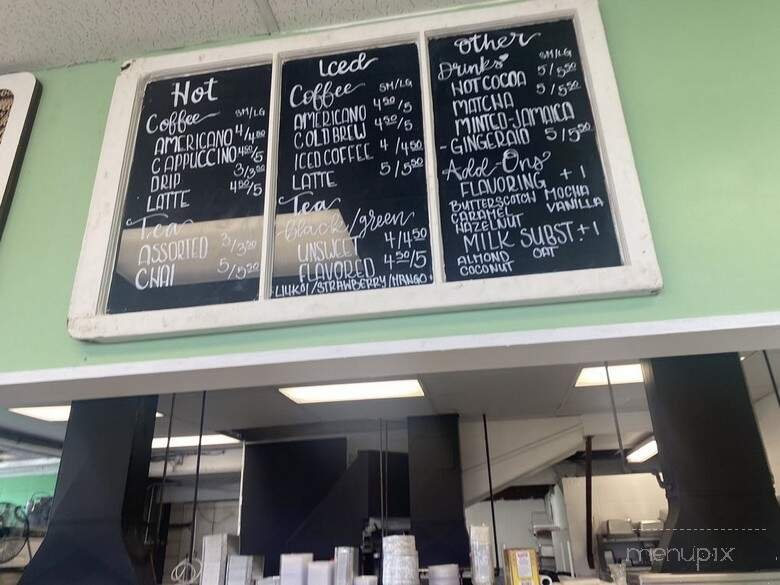 Hot
Coffee SM/LG
AMERICANO 4/4.50
CAPPUCCINO 4.50/5
DRIP 3/3.50
LATTE 4.50/5
Tea
ASSORTED 3/3.50
CHAI 5/5.50
Iced
Coffee SM/LG
AMERICANO 4.50/5
COLD BREW 4.50/5
ICED COFFEE 4/4.50
LATTE 5/5.50
Tea
-black/green
UNSWEET 4/4.50
FLAVORED 4.50/5
LILIKOI/STRAWBERRY/MANGO
other
Drinks SM/LG
HOT COCOA 5/5.50
MATCHA 5/5.50
MINTED-JAMAICA
-GINGERAID 5/5.50
Add-Ons
FLAVORING +1
BUTTERSCOTCH MOCHA
CARAMEL VANILLA
HAZELNUT
MILK SUBST.+1
ALMOND OAT
COCONUT
menupix